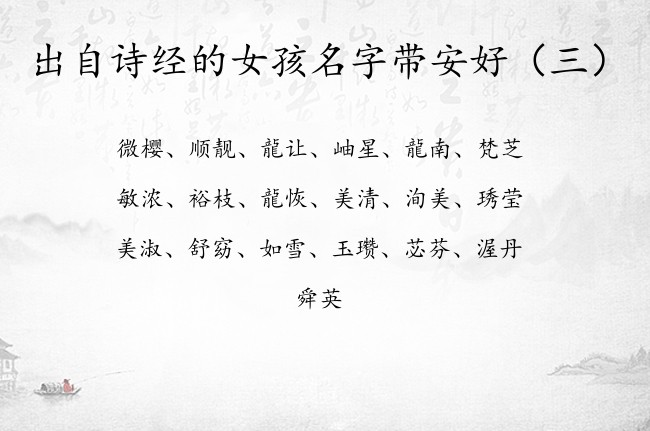 出自诗经的女孩名字带安好（三）
微樱、顺靓、龍让、岫星、龍南、梵芝
敏浓、裕枝、龍恢、美清、洵美、琇莹
美淑、舒窈、如雪、玉瓒、苾芬、渥丹
舜英